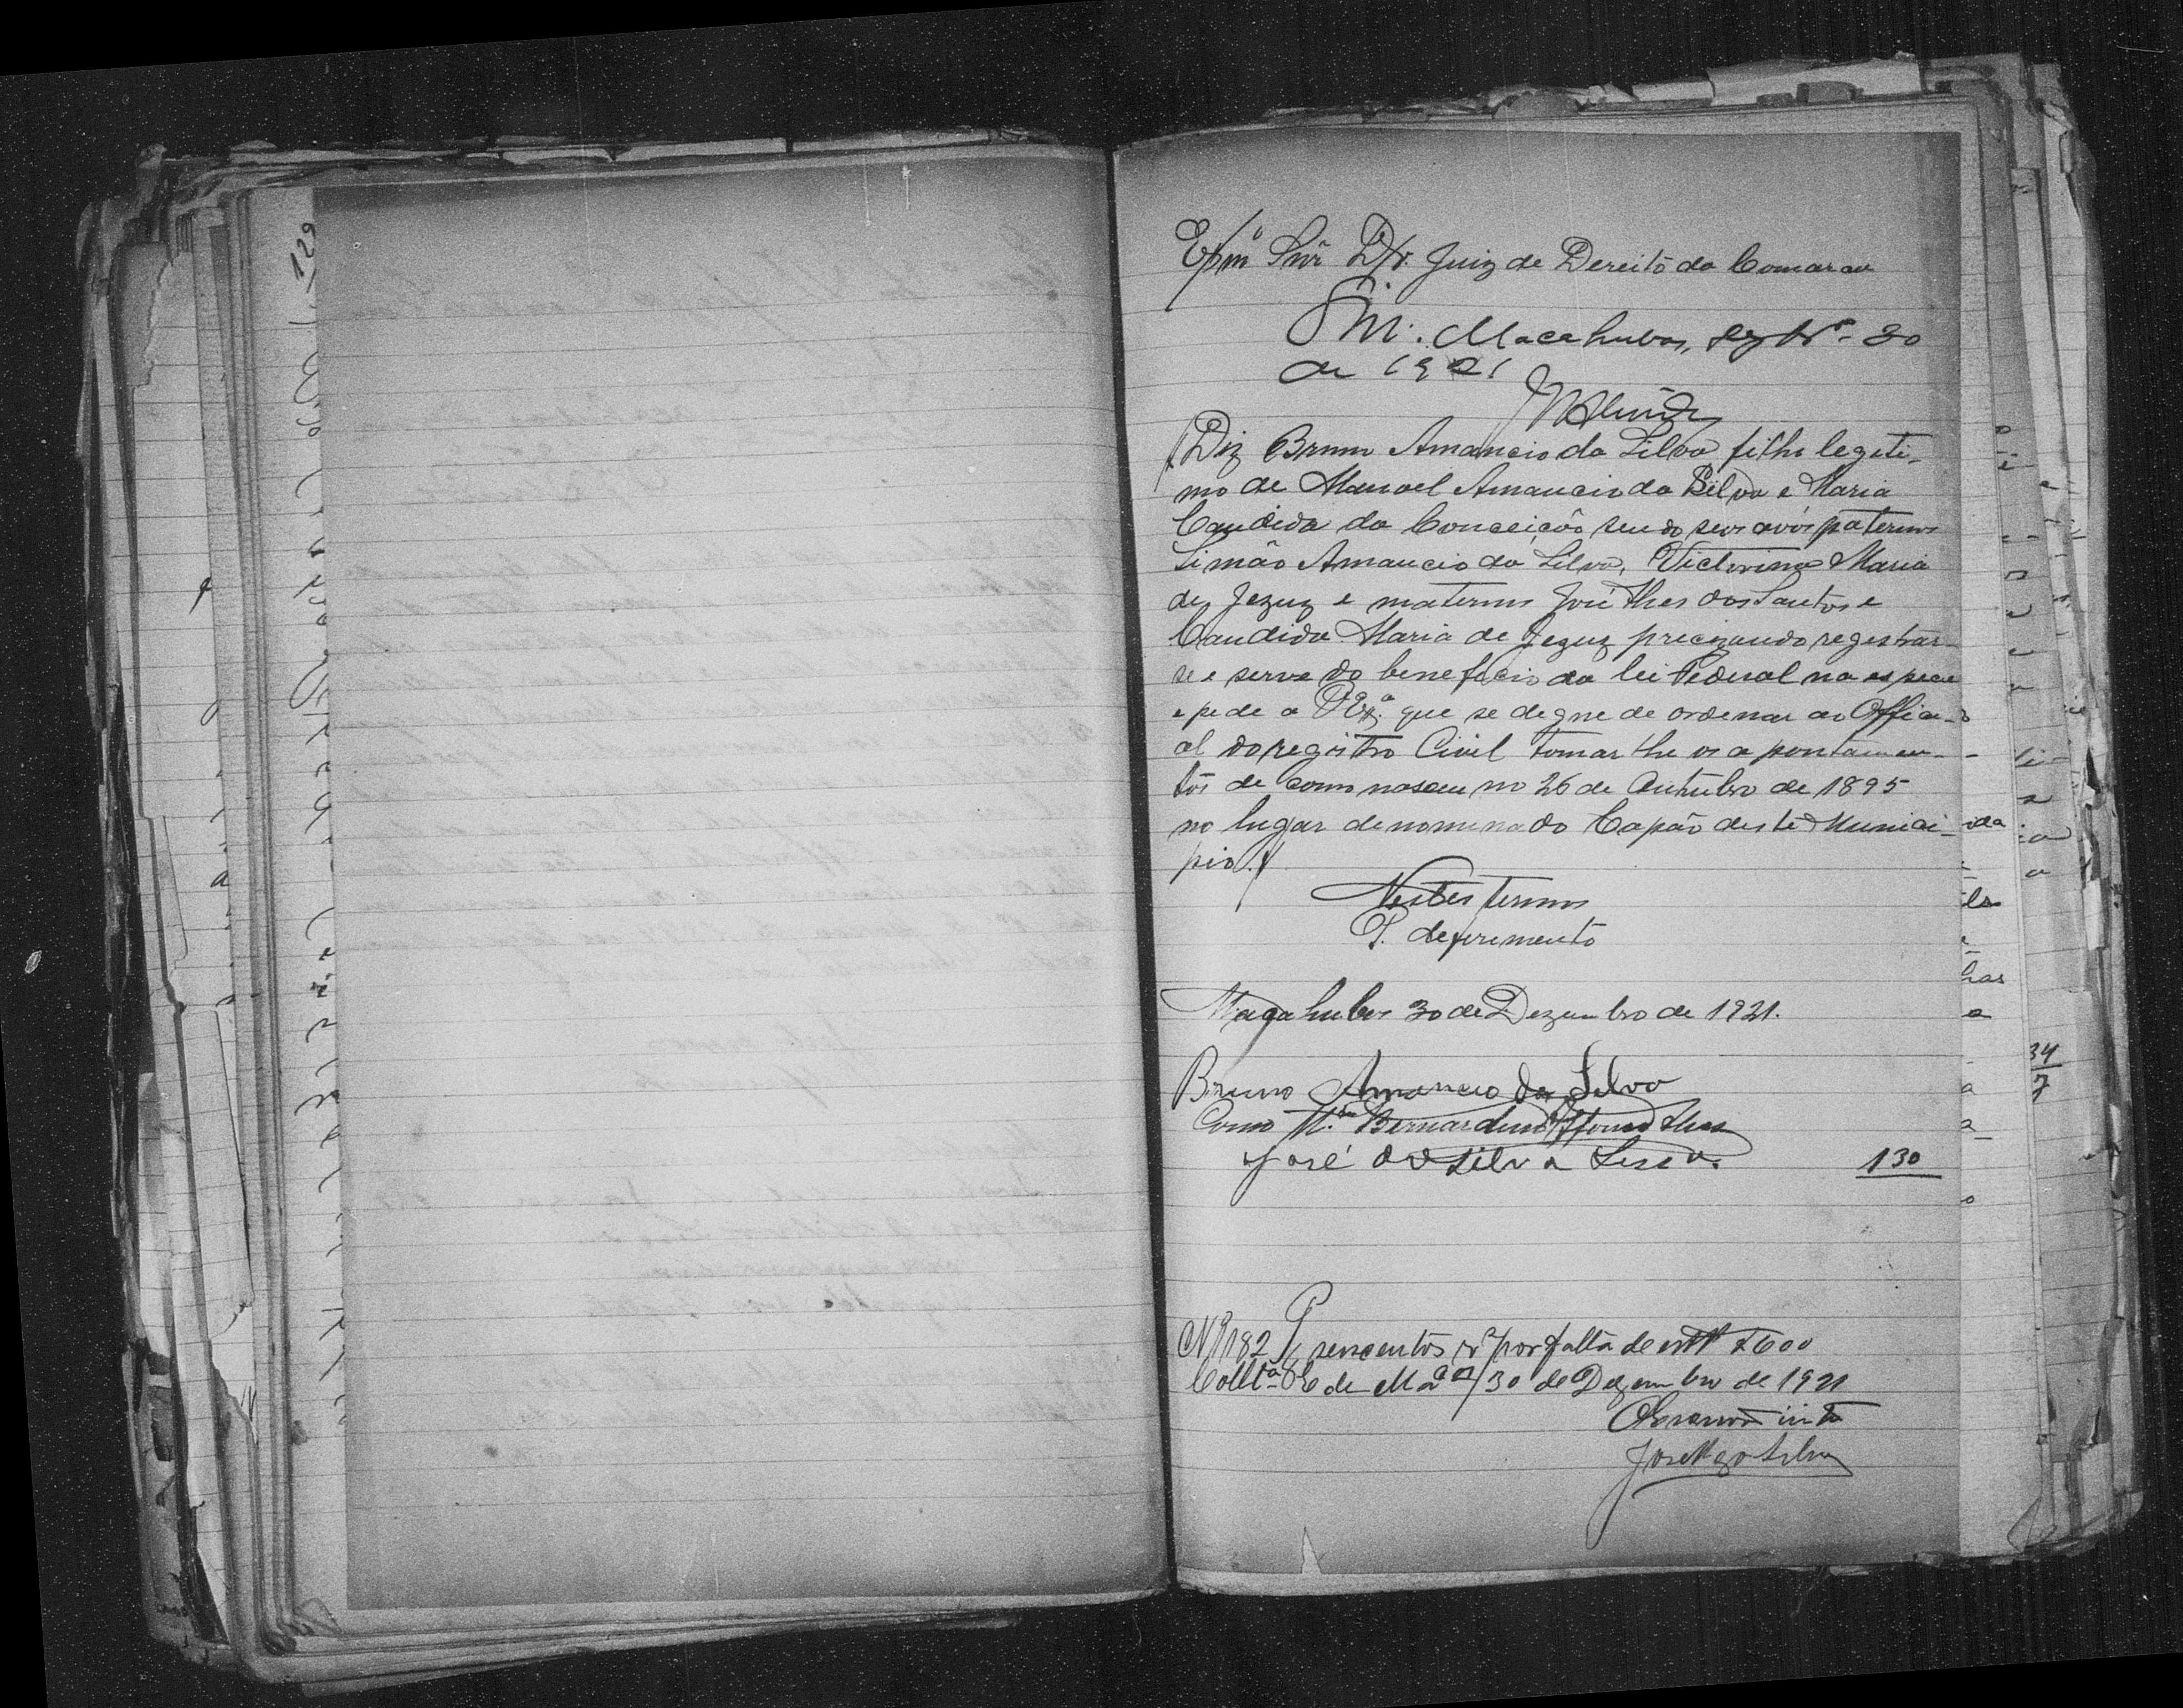 129
Exmº Snr̃ Dr. Juiz de Dereito da Comarca
Sim. Macahubas, dezbrº 30
de 1921
Diz Bruno Amancio da Silva filho legeti-
mo de Manoel Amancio da Silva e Maria
Candida da Conceição sendo seus avós paternos
Simão Amancio da Silva, Victorina Maria
de Jezuz e maternos José Thes dos Santos e
Candida Maria de Jezuz precizando registrar-
se e serve do beneficio da lei Federal na especie
e pede a V Exª. que se degne de ordenar ao Offici-
al do registro Civil tomar lhe os apontamen-
tos de como nasceu no 26 de Outubro de 1895
no lugar denominado Capão deste Munici-
pio.
Nestes termos
P. deferimento
Macahubas 30 de Dezembro de 1921.
Bruno Amancio da Silva
Como Tª. Bernardino Thes
José da Silva
130
Nº 182 Pg seiscentos rs por falta de estª $600
Colltª de Macªˢ 30 de Dezembro de 1921
O Escrivão intº
José da Silva